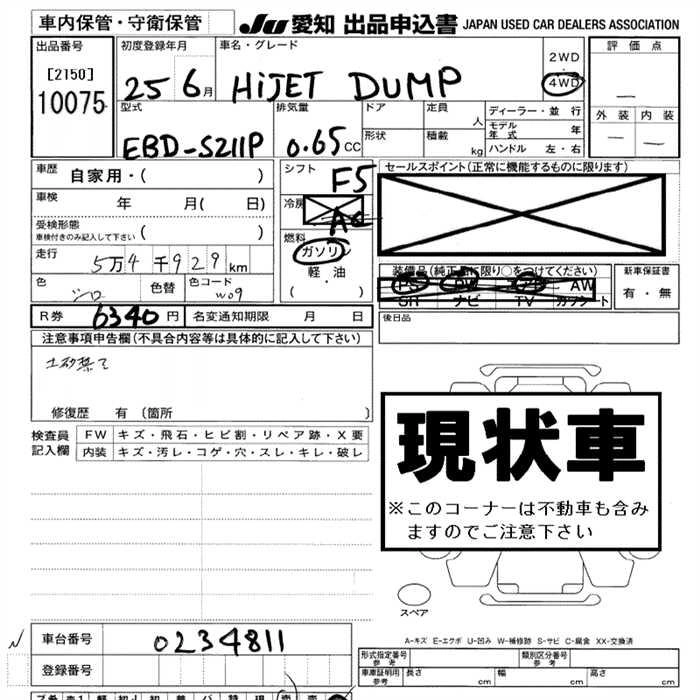 車内保管・守衛保管
JU 愛知 出品申込書 JAPAN USED CAR DEALERS ASSOCIATION
出品番号
[2150]
10075
初度登録年月
25 6月
車名・グレード
HiJET DUMP
2WD
・
4WD
評価点
—
外装 内装
— —
型式
EBD-S211P
排気量
0.65 CC
ドア
定員
人
形状
積載
kg
ディーラー・並行
モデル年式 年
ハンドル 左・右
車歴
自家用・( )
車検
年 月( 日)
受検形態
車検付きのみ記入して下さい ( )
走行
5万4千929km
色
シロ
色替
色コード
W09
シフト
F5
冷房
AC
燃料
ガソリン
軽・油
( )
セールスポイント(正常に機能するものに限ります)
装備品(純正品に限り○をつけてください)
PS PW AW
SR ナビ TV カワシート
新車保証書
有・無
R券 6340円
名変通知期限 月 日
後日品
注意事項申告欄(不具合内容等は具体的に記入して下さい)
修復歴 有 〔箇所 〕
検査員記入欄
FW キズ・飛石・ヒビ割・リペア跡・X要
内装 キズ・汚レ・コゲ・穴・スレ・キレ・破レ
現状車
※このコーナーは不動車も含み
ますのでご注意下さい
スペア
A-キズ E-エクボ U-凹み W-補修跡 S-サビ C-腐食 XX-交換済
車台番号
0234811
登録番号
形式指定番号
参考
類別区分番号
参考
車庫証明用
参考
長さ cm
幅 cm
高さ cm